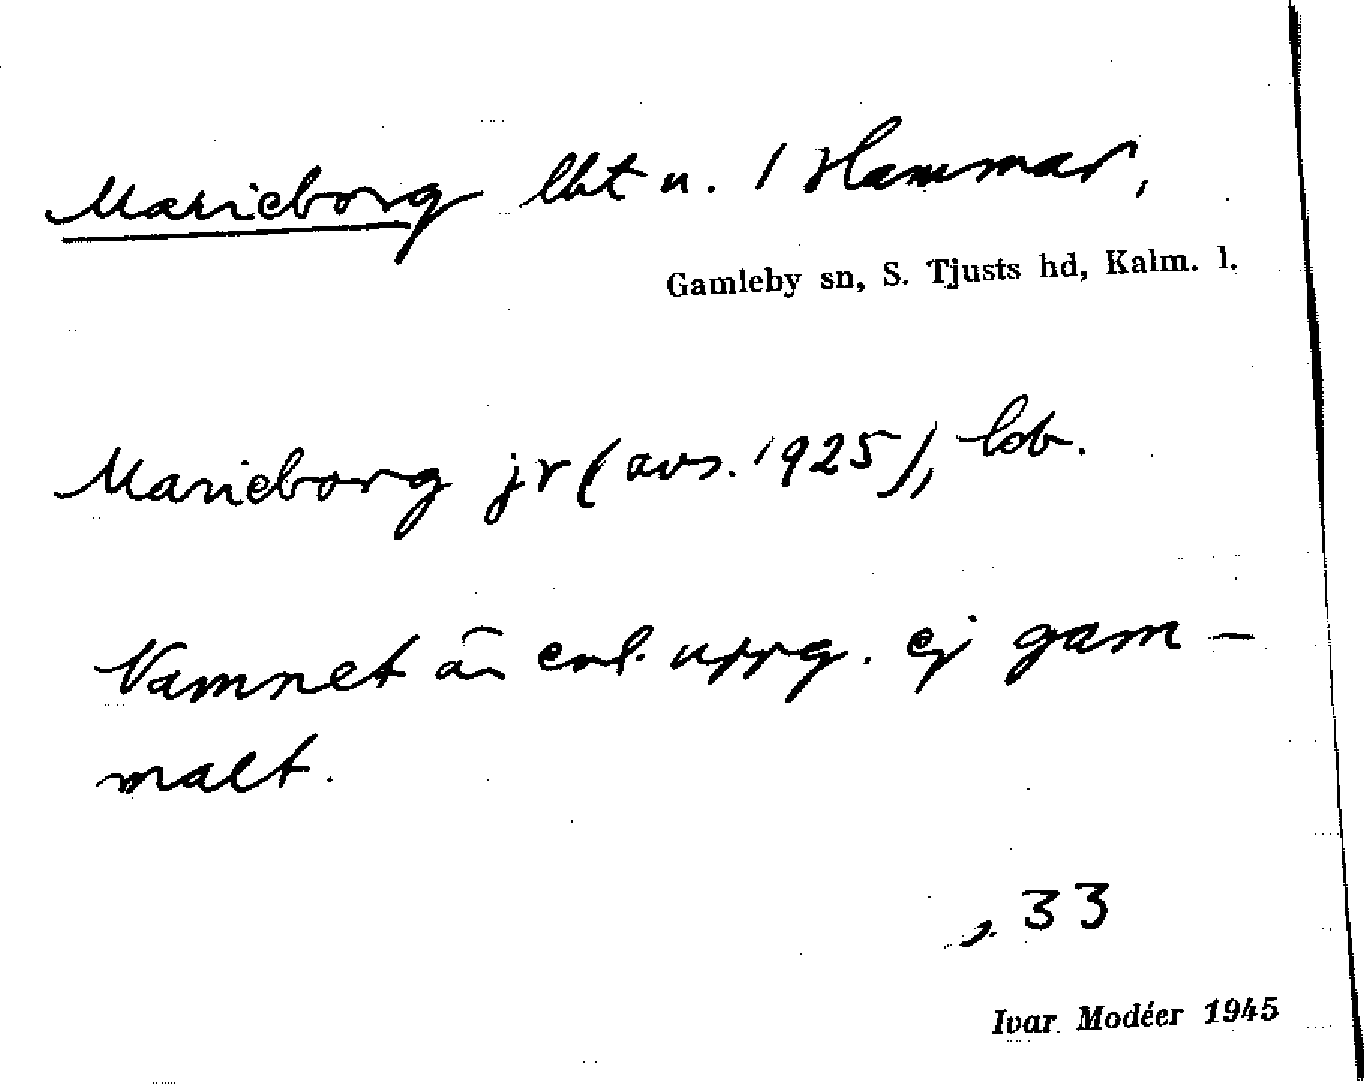 Marieborg lht u. / Hammar,
Gamleby sn, S. Tjusts hd, Kalm. l.
Marieborg jr (avs. 1925), ldb.
Namnet är enl. uppg. ej gam-
malt.
s. 33
Ivar Modéer 1945